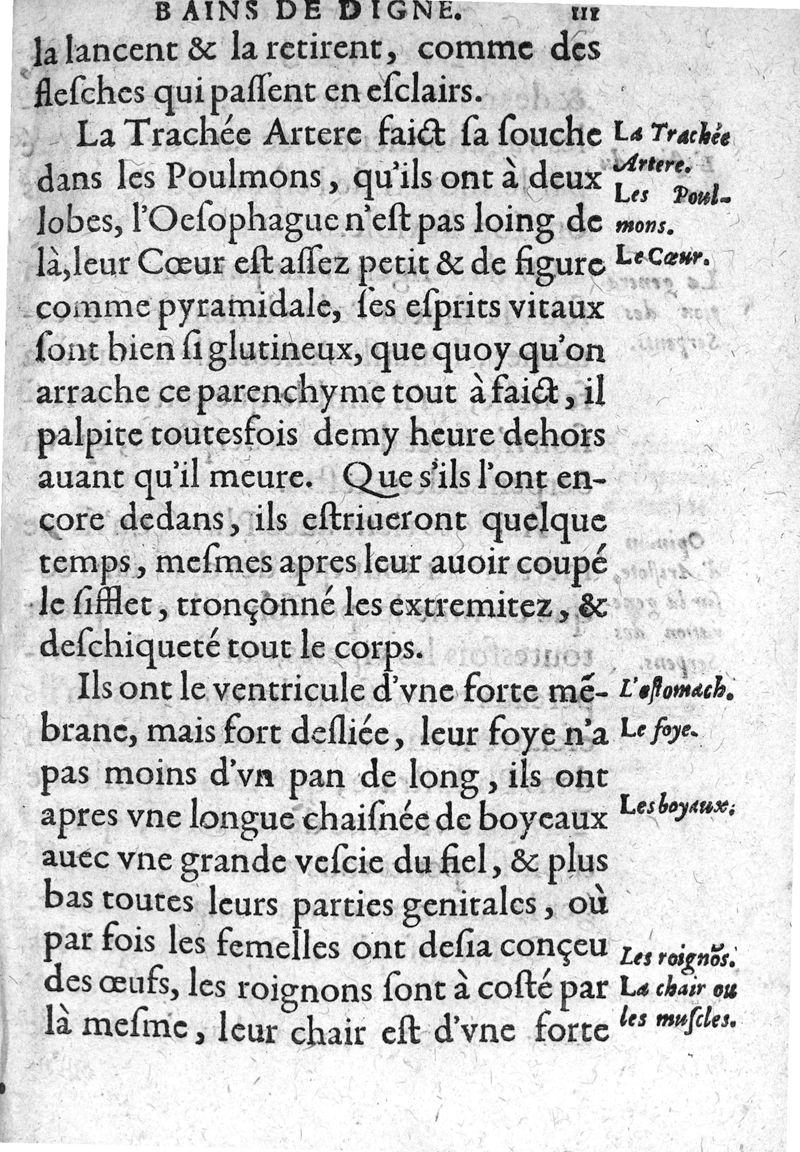 BAINS DE DIGNE. 111
la lancent & la retirent, comme des
flesches qui passent en esclairs.
La Trachée Artere faict sa souche
dans les Poulmons, qu'ils ont à deux
lobes, l'Oesophague n'est pas loing de
là, leur Cœur est assez petit & de figure
comme pyramidale, ses esprits vitaux
sont bien si glutineux, que quoy qu'on
arrache ce parenchyme tout à faict, il
palpite toutesfois demy heure dehors
auant qu'il meure. Que s'ils l'ont en-
core dedans, ils estriueront quelque
temps, mesmes apres leur auoir coupé
le sifflet, tronçonné les extremitez, &
deschiqueté tout le corps.
Ils ont le ventricule d'vne forte mẽ-
brane, mais fort desliée, leur foye n'a
pas moins d'vn pan de long, ils ont
apres vne longue chaisnée de boyeaux
auec vne grande vescie du fiel, & plus
bas toutes leurs parties genitales, où
par fois les femelles ont desia conçeu
des œufs, les roignons sont à costé par
là mesme, leur chair est d'vne forte
La Trachée
Artere.
Les Poul-
mons.
Le Cœur.
L'estomach.
Le foye.
Les boyaux.
Les roignõs.
La chair ou
les muscles.